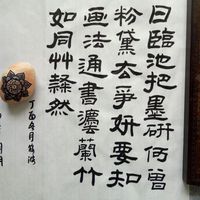 日臨池把墨研何曾
粉黛去爭妍要知
画法通書灋蘭竹
如同艸隸然
丁酉冬月